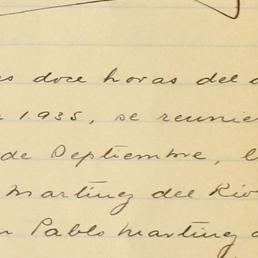 s doce horas del d
1935, se reunie
de Septiembre, l
Martínez del Río
n Pablo Martínez d